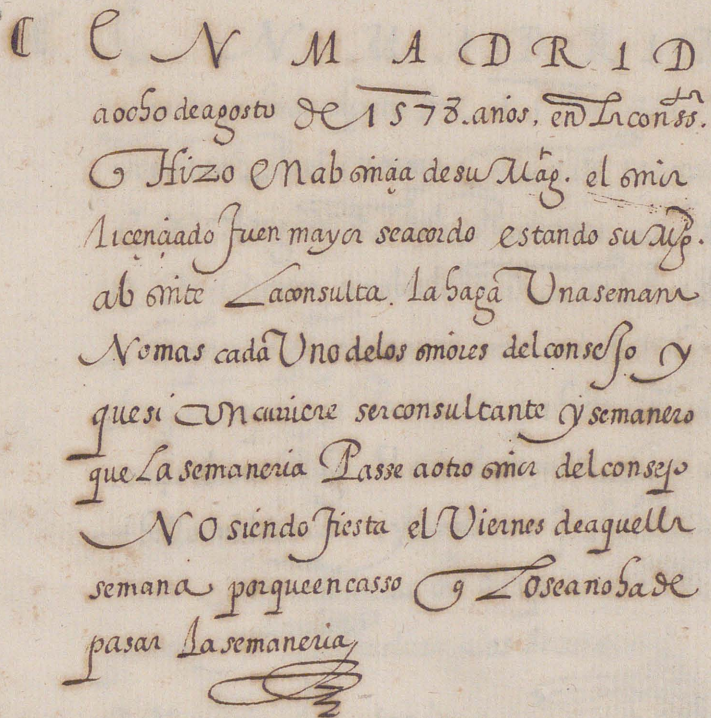 C EN MADRID
a ocho de agosto de 1578. años, en la conss.ta
q Hizo en absençia de su Mag.t el señor
Licençiado Juen mayor se acordo estando su Mg.d
absente La consulta. la haga Una semana
No mas cada Uno delos señores del consejo y
que si concurriere ser consultante y semanero
que La semaneria Passe a otro señor del consejo
No siendo fiesta el Viernes de aquella
semana porque en casso q Lo sea no ha de
pasar La semaneria